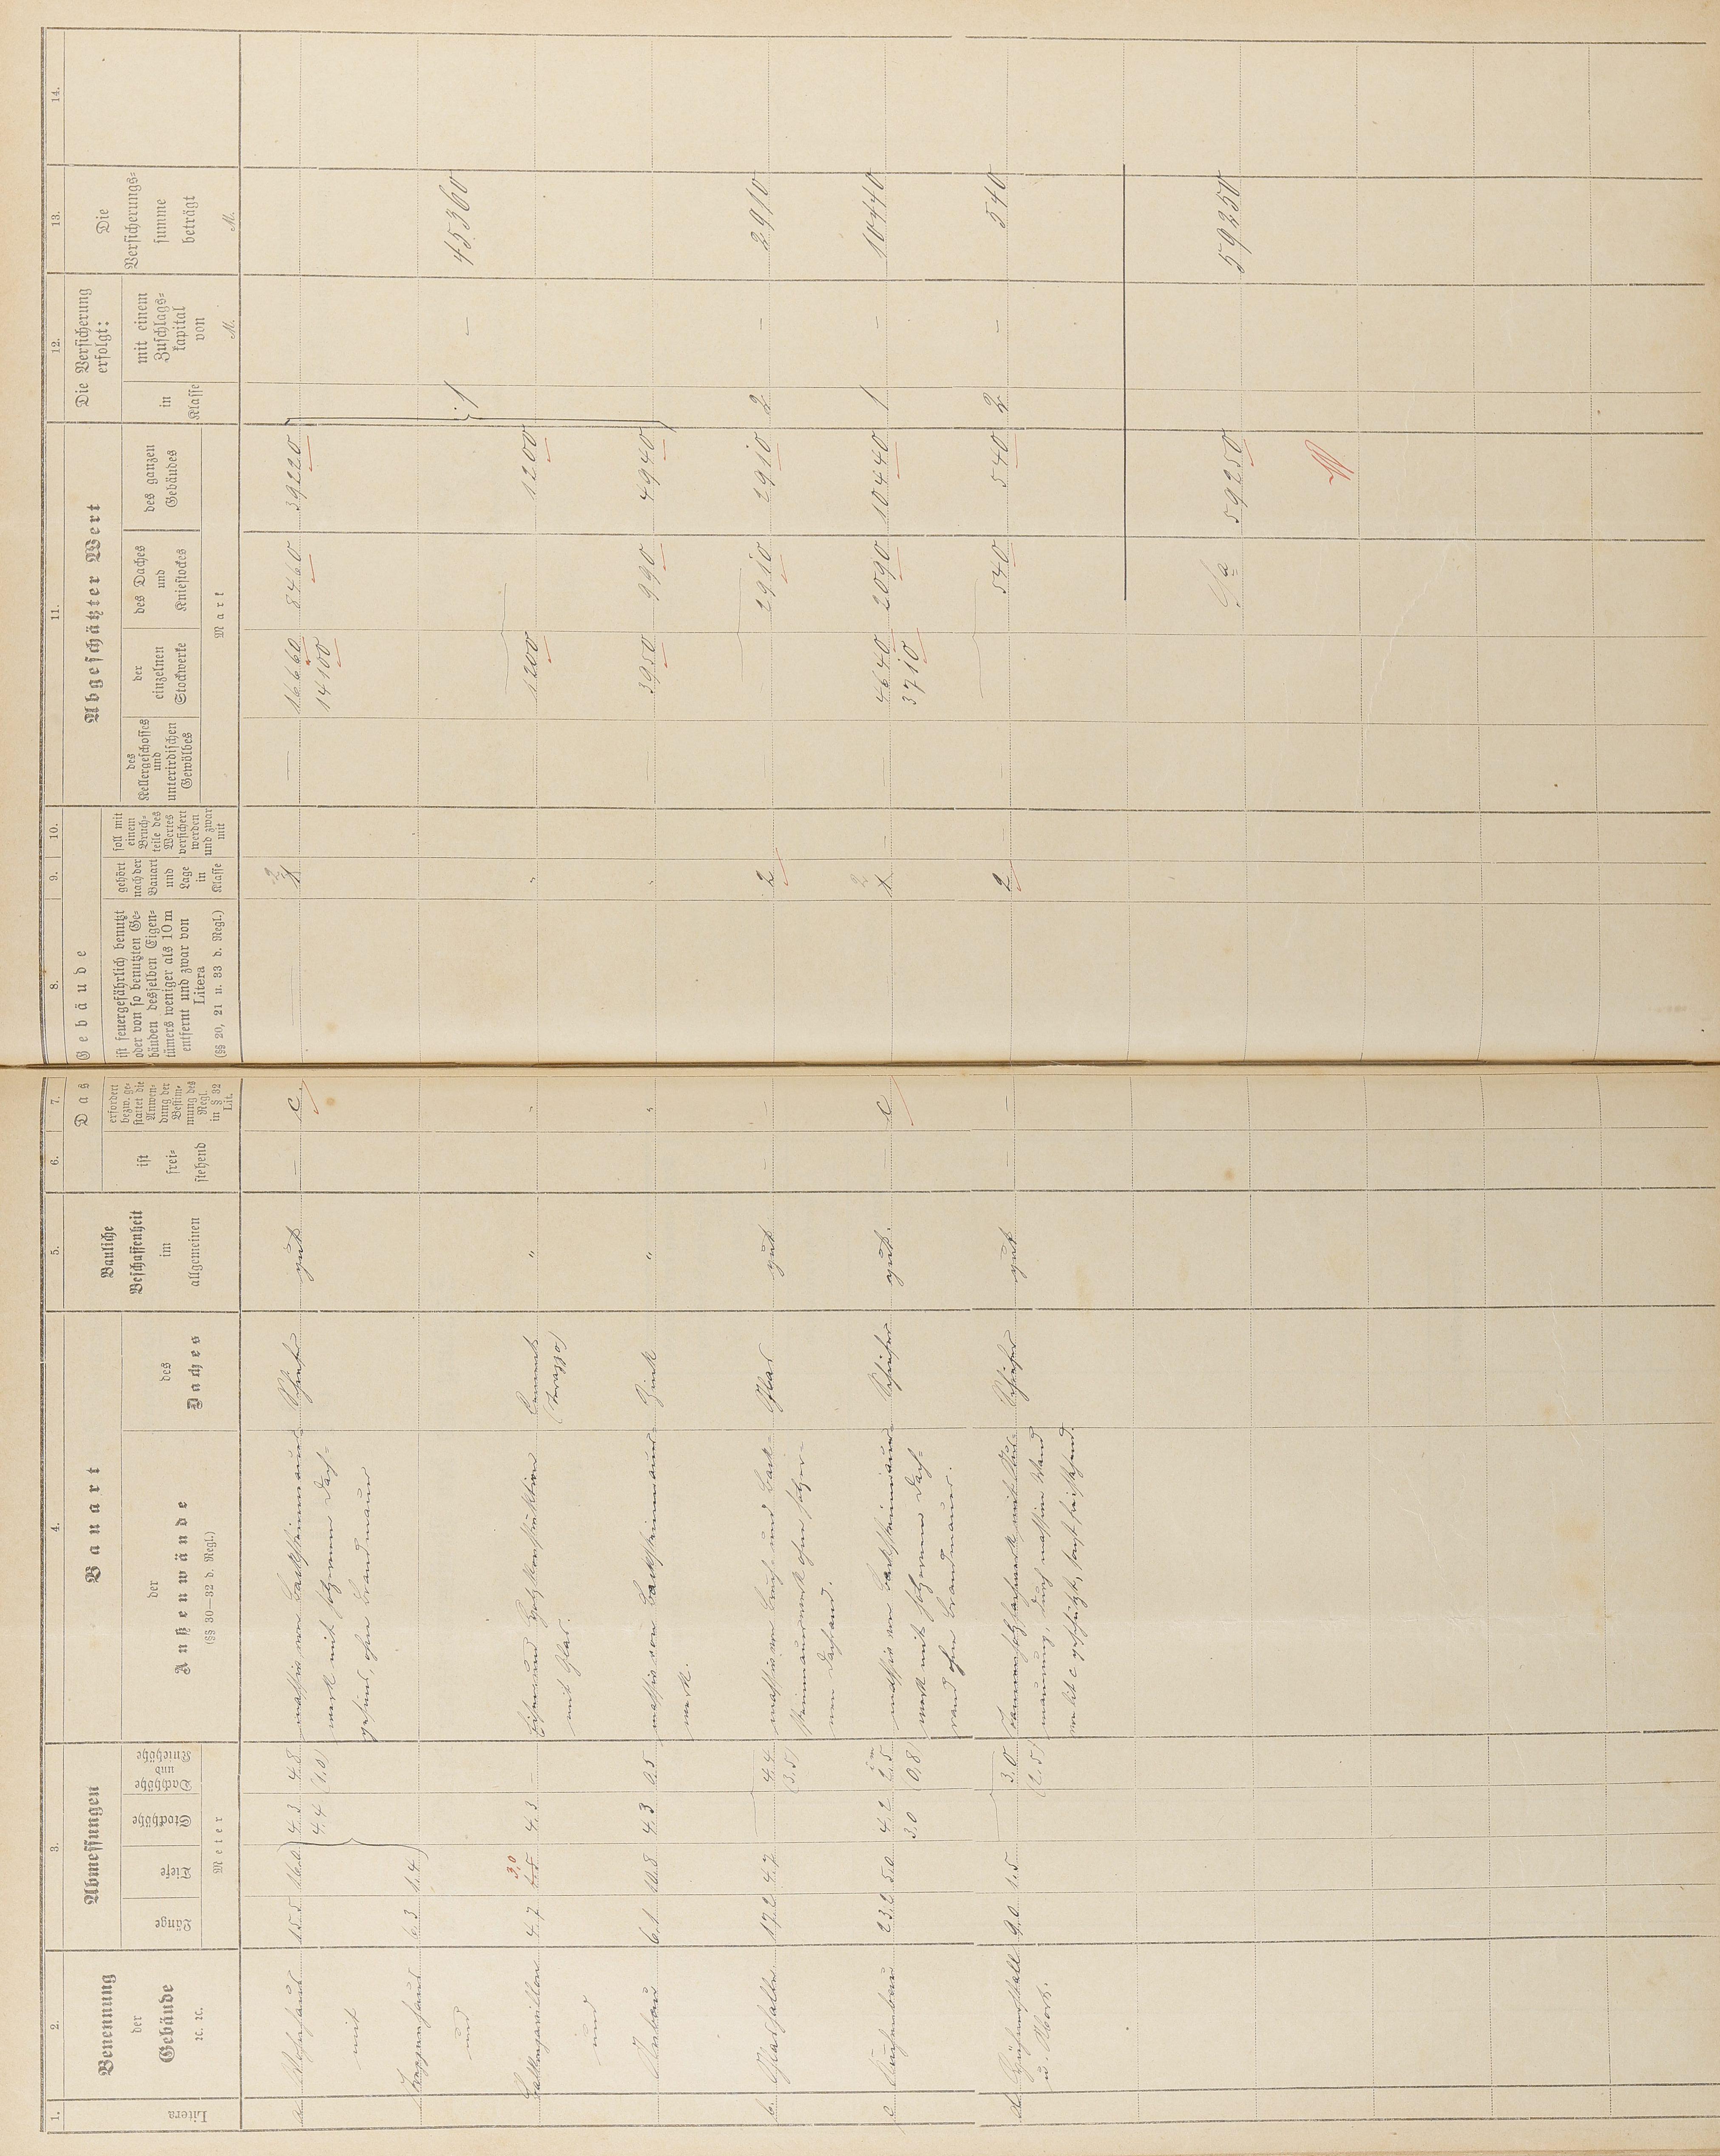 1.
Litera
2.
Benennung
der
Gebäude
2c. 2c.
3.
Abmessungen
Länge
Tiefe
Stockhöhe
Dachhöhe
und
Kniehöhe
Meter
4.
Bauart
der
Außenwände
(§§ 30—32 d. Regl.)
des
Daches
5.
Bauliche
Beschaffenheit
im
allgemeinen
6.
ist
frei-
stehend
7.
Das
erfordert
bezw. ge-
stattet die
Anwen-
dung der
Bestim-
mung des
Regl.
in § 32
Lit.
8.
Gebäude
ist feuergefährlich benutzt
oder von so benutzten Ge-
bäuden desselben Eigen-
tümers weniger als 10 m
entfernt und zwar von
Litera
(§§ 20, 21 u. 33 d. Regl.)
9.
gehört
nach der
Bauart
und
Lage
in
Klasse
10.
soll mit
einem
Bruch-
teile des
Wertes
versichert
werden
und zwar
mit
11.
Abgeschätzter Wert
des
Kellergeschosses
und
unterirdischen
Gewölbes
der
einzelnen
Stockwerke
des Daches
und
Kniestockes
des ganzen
Gebäudes
Mark
12.
Die Versicherung
erfolgt:
in
Klasse
mit einem
Zuschlags-
kapital
von
M.
13.
Die
Versicherungs-
summe
beträgt
M.
14.
a. Wohnhaus 15.5 16.0 4.3 4.8 massiv von Backsteinmauer- Schiefer gut — c. — 16660 8460 39220
4.4 (1.0) werk mit hölzernem Dach- 14100
mit gesims, ohne Brandmauer
Treppenhaus 6.3 1.4
und 1 — 45360
Balkonpavillon 4.7 3.0 4.3 — Eisen und Holzkonstruktion Cement " " " 1200 1200
mit Glas. (Terazzo)
und
Anbau 6.1 10.8 4.3 0.5 massiv von Backsteinmauer- Zink " " " 3950 990 4940
werk.
b. Glashalle 17.2 4.7 4.4 massiv von Bruch und Back- Glas gut — — 2 2910 2910 2 — 2910
(3.5) steinmauerwerk ohne hölzer-
nen Dachrand.
c Küchenbau 23.2 5.0 4.2 2.5 massiv von Backsteinmauer- Schiefer gut. — c — 4640 2090 10440 1 — 10440
3.0 (0.8) werk mit hölzernem Dach- 3710
rand ohne Brandmauer.
d. Hühnerstall 9.0 1.5 3.0 Tannenholzfachwerk mit Aus- Schiefer gut — — 2 — — 540 540 2 — 540
u. Abort. (2.5) mauerung, durch massive Wand
von lit c geschützt, sonst freistehend.
Sa 59250 59250